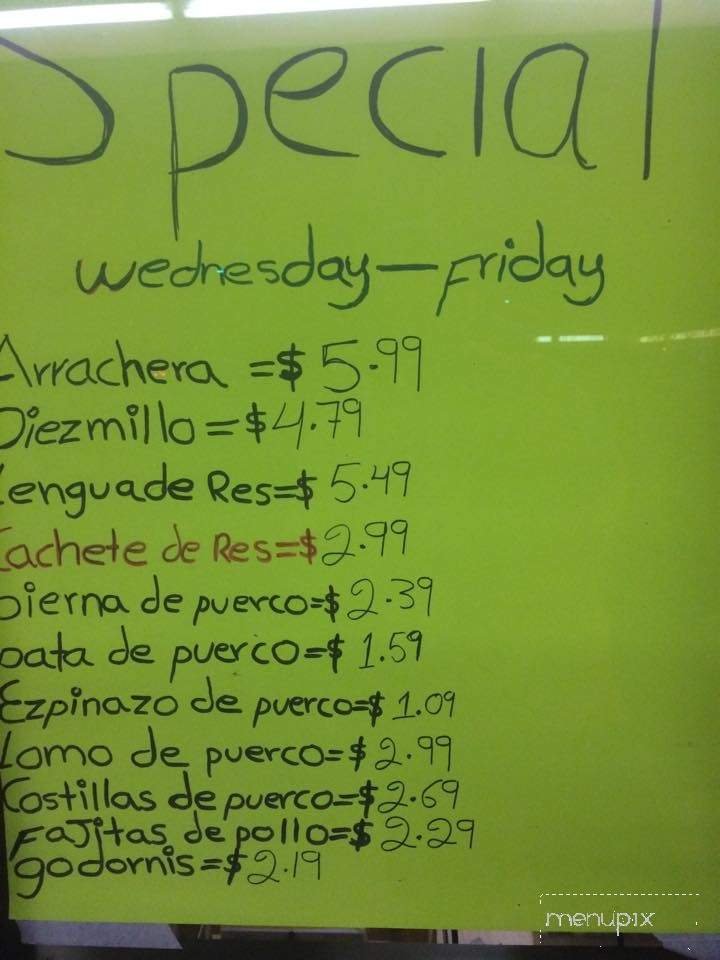 Special
Wednesday-Friday
Arrachera =$ 5.99
Diezmillo=$4.79
Lengua de Res=$ 5.49
Cachete de Res=$2.99
pierna de puerco=$ 2.39
pata de puerco=$ 1.59
Ezpinazo de puerco=$ 1.09
Lomo de puerco=$2.99
Costillas de puerco=$2.69
Fajitas de pollo=$ 2.29
godornis=$2.19
menupix